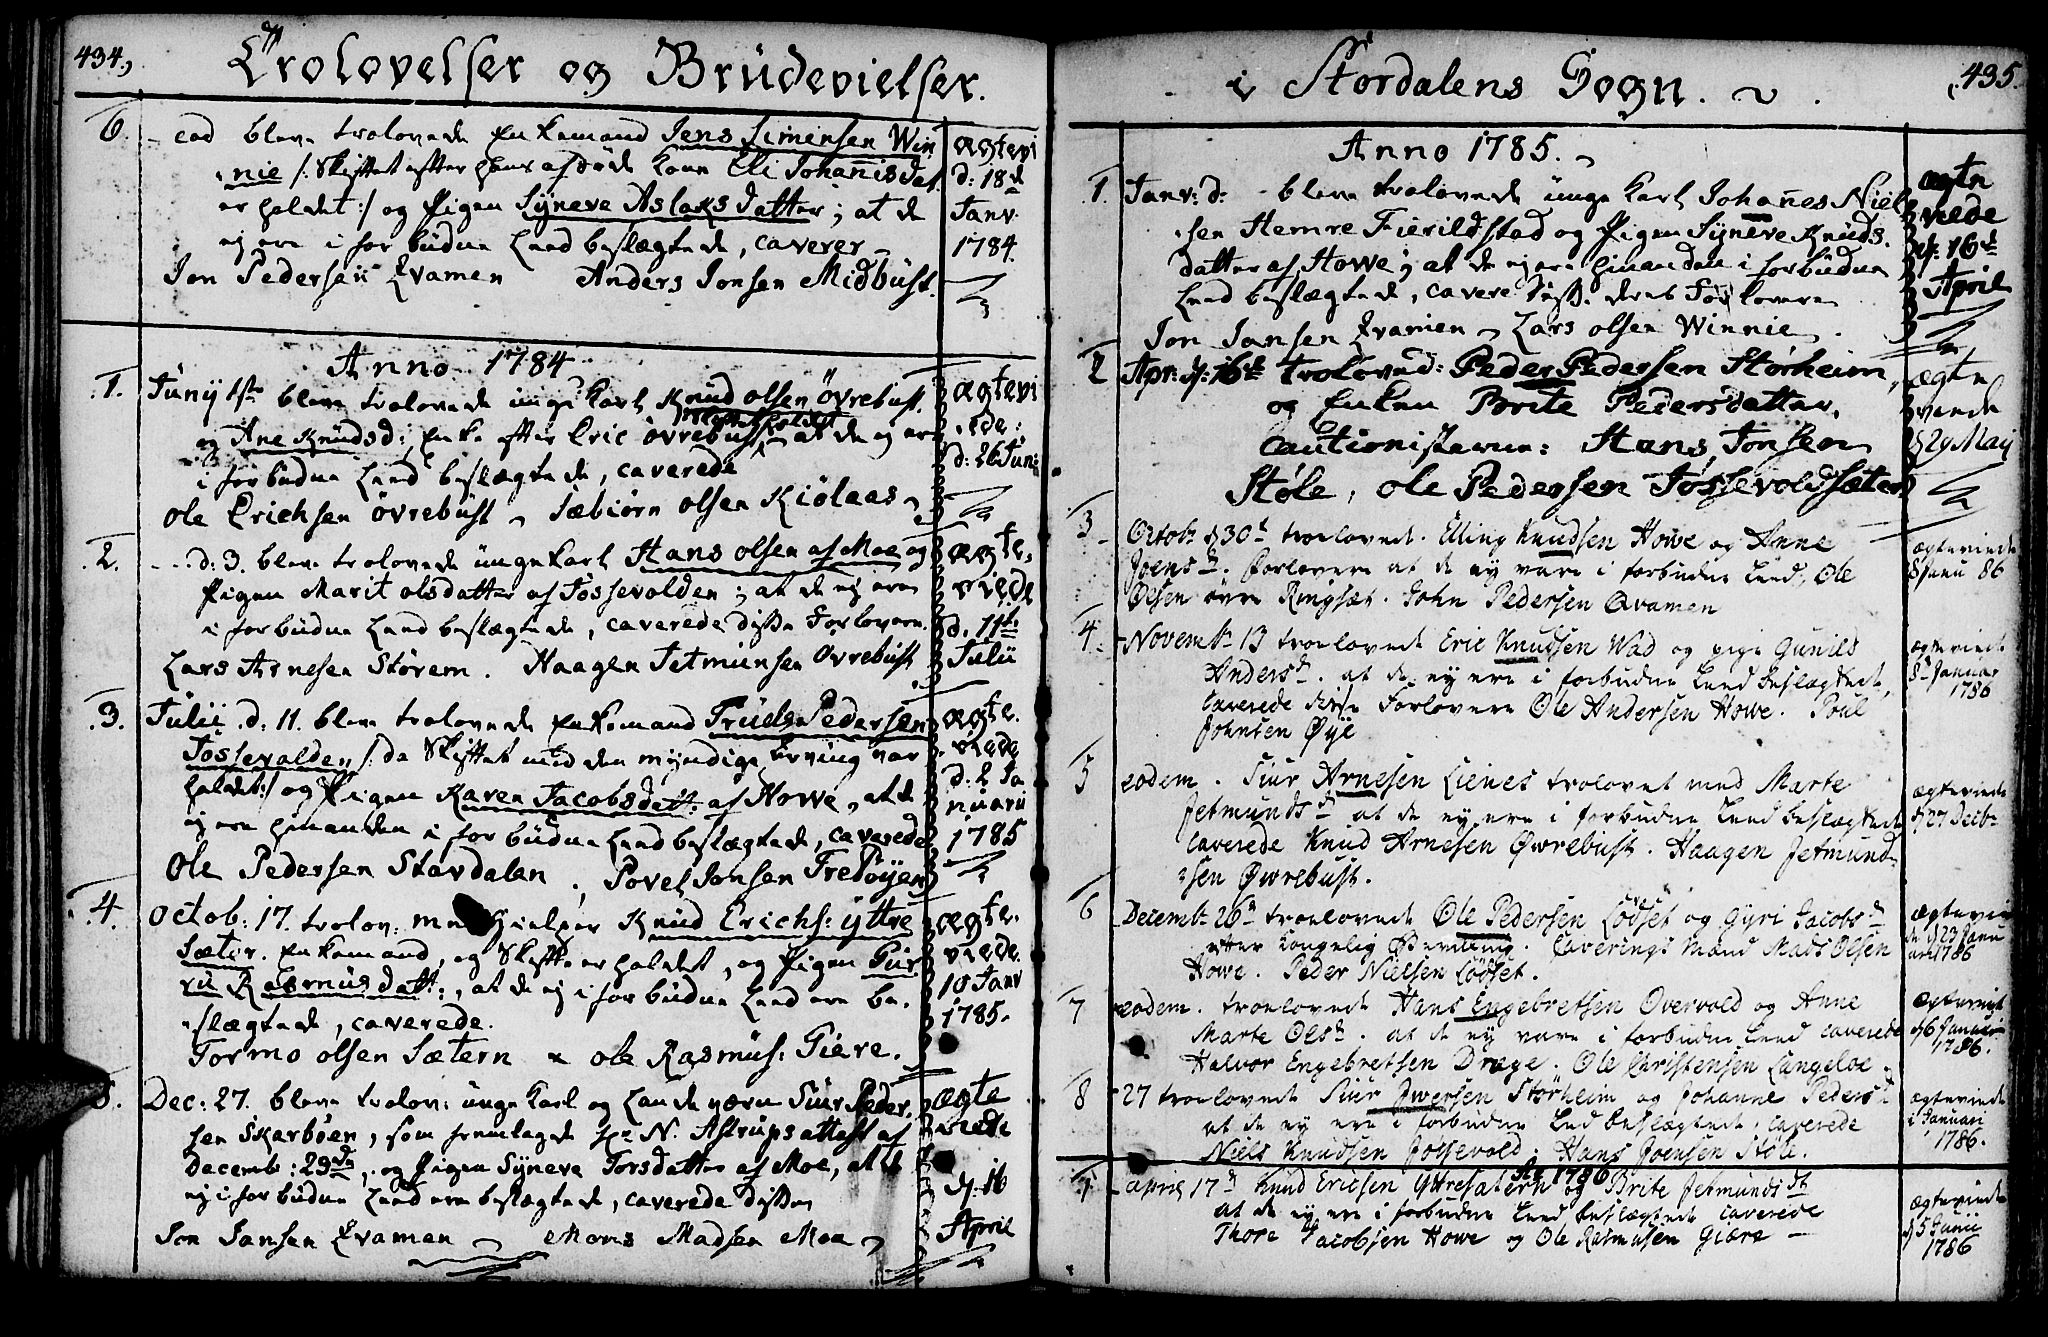 434,
Trolovelser og Brüdevielser.
6. – eod bleve trolovede Enkemand Jens Simensen Win
nie /: Skiftet efter hans afdøde Kone Eli Johannisdat.
er holdet :/ og Pigen Syneve Aslaksdatter; at de
ej ere i forbudne Leed beslægtede, caverer
Jon Pedersen Qvamen Anders Jonsen Midbust.
ægtevi
d: 18d
Janv:
1784.
Anno 1784
1. Junij 1ste bleve trolovede unge Karl Knud olsen övrebust.
og Ane Knudsd; Enke efter Eric övrebust at de ej ere
i forbudne Leed beslægtede, caverede
Ole Erichsen övrebust – Sæbiörn olsen Kiölaas –
ægtevi
ede:
d. 26 Juni
2. .... d: 3. bleve trolovede unge Karl Hans olsen af Moe og
Pigen Marit olsdatter af Fossevolden; at de ej ere
i forbudne Leed beslægtede, caverede disse Forlovere
Lars Arnesen Störem. Haagen Jetmunsen Övrebust
ægte,
viede
d. 11te
Julii
3. Julii d: 11. bleve trolovede Enkemand Truels Pedersen
Fossevolden, /: da Skiftet med den myndige Arving var
holdet :/ og Pigen Karen Jacobsdatt: af Howe, at de
ej ere hinanden i forbudne Leed beslægtede, caverede
Ole Pedersen Stavdalen, Povel Jonsen Fredöyen
ægte.
viede
d. 2 Ja
nuarii
1785
4. Octob: 17. trolov: Knud Erichs: yttre
Sæter. Enkemand, og Skifte er holdet, og Pigen Gur
ru Rasmusdatt:, at de ej i forbudne Leed ere be.
slægtede, caverede.
Tormo olsen Sætern x ole Rasmus: Giere.
ægte.
viede
10 Janv
1785.
5. Dec: 27. bleve trolov: unge Karl og Siur Peder.
sen Skarböen, som fremlagde Hr N. Astrups attest af
Decemb: 23de, og Pigen Syneve Torsdatter af Moe, at de
ej i forbudne Leed ere beslægtede, caverede disse
Jon Jansen Qvamen – Mons Madsen Moe –
ægte
viede
d: 16
April
435.
i Stordalens Sogn. ~
Anno 1785. ~
1. Janv: d: – bleve trolovede unge Karl Johannes Niel
sen Hemre Fierildstad og Pigen Syneve Knuds.
datter af Howe; at de ej ere hinanden i forbudne
Leed beslægtede, cavere deres Forlovere
Jon Jansen Qvamen – Lars olsen Winnie.
ægte
viede
d: 16d
April
2 Apr: d: 16de troloved: Peder Pedersen Störheim,
og Enken Brite Pedersdatter,
Cautionisterne: Hans Jonsen
Stöle, Ole Pedersen Fossevoldsæter
ægte
viede
d 29 Maij
3 Octob: d 30t troelovede. Elling Knudsen Howe og Anne
Joensd. Forlovere at de ey vare i forbudne Leed, Ole
Olsen övre Ringsæt. John Pedersen Qvamen
ægteviede
8 Janu 86
4. – Novembr 13 troelovede Eric Knudsen Wad og pige Gunild
Andersd. at de ey ere i forbudne Leed beslægtede,
caverede disse Forlovere Ole Andersen Howe. Poul
Johnsen Øye
ægteviede
8de Januar
1786
5 eodem. Siur Arnesen Lienes trolovet med Marte
Jetmundsd at de ey ere i forbudne Leed beslægtede
caverede Knud Arnesen Øwrebust. Haagen Jetmund
sen Øwrebust.
ægteviede
d 27 Decbr
6 Decembr 26d troelovede Ole Pedersen Lödset og Gyri Jacobsd
efter kongelig Bevilling. Caverings Mænd Mads Olsen
Howe. Peder Nielsen Lödset.
ægtevie
de d 23 Janu
arii 1786
7 eodem. troelovede Hans Engebretsen Overvold og Anne
Marte Olsd. at de ey vare i forbudne Leed caverede
Halvor Engebretsen Drage. Ole Christensen Langeloe.
ægteviede
d 6 Januar
1786.
8 – 27 troelovede Siur Iwersen Störheim og Johanne Pedersd
at de ey ere i forbudne Leed beslægtede, caverede
Niels Knudsen Fossevold. Hans Joensen Stöle.
ægteviede
i Januari
1786.
Ao 1786
1 – april 17d Knud Ericsen Yttresætern og Brite Jetmundsd
at de ey ere i forbudne Leed beslægtede caverede
Thore Jacobsen Howe og Ole Rasmusen Giære –
ægteviede
d 5 Junii
1786